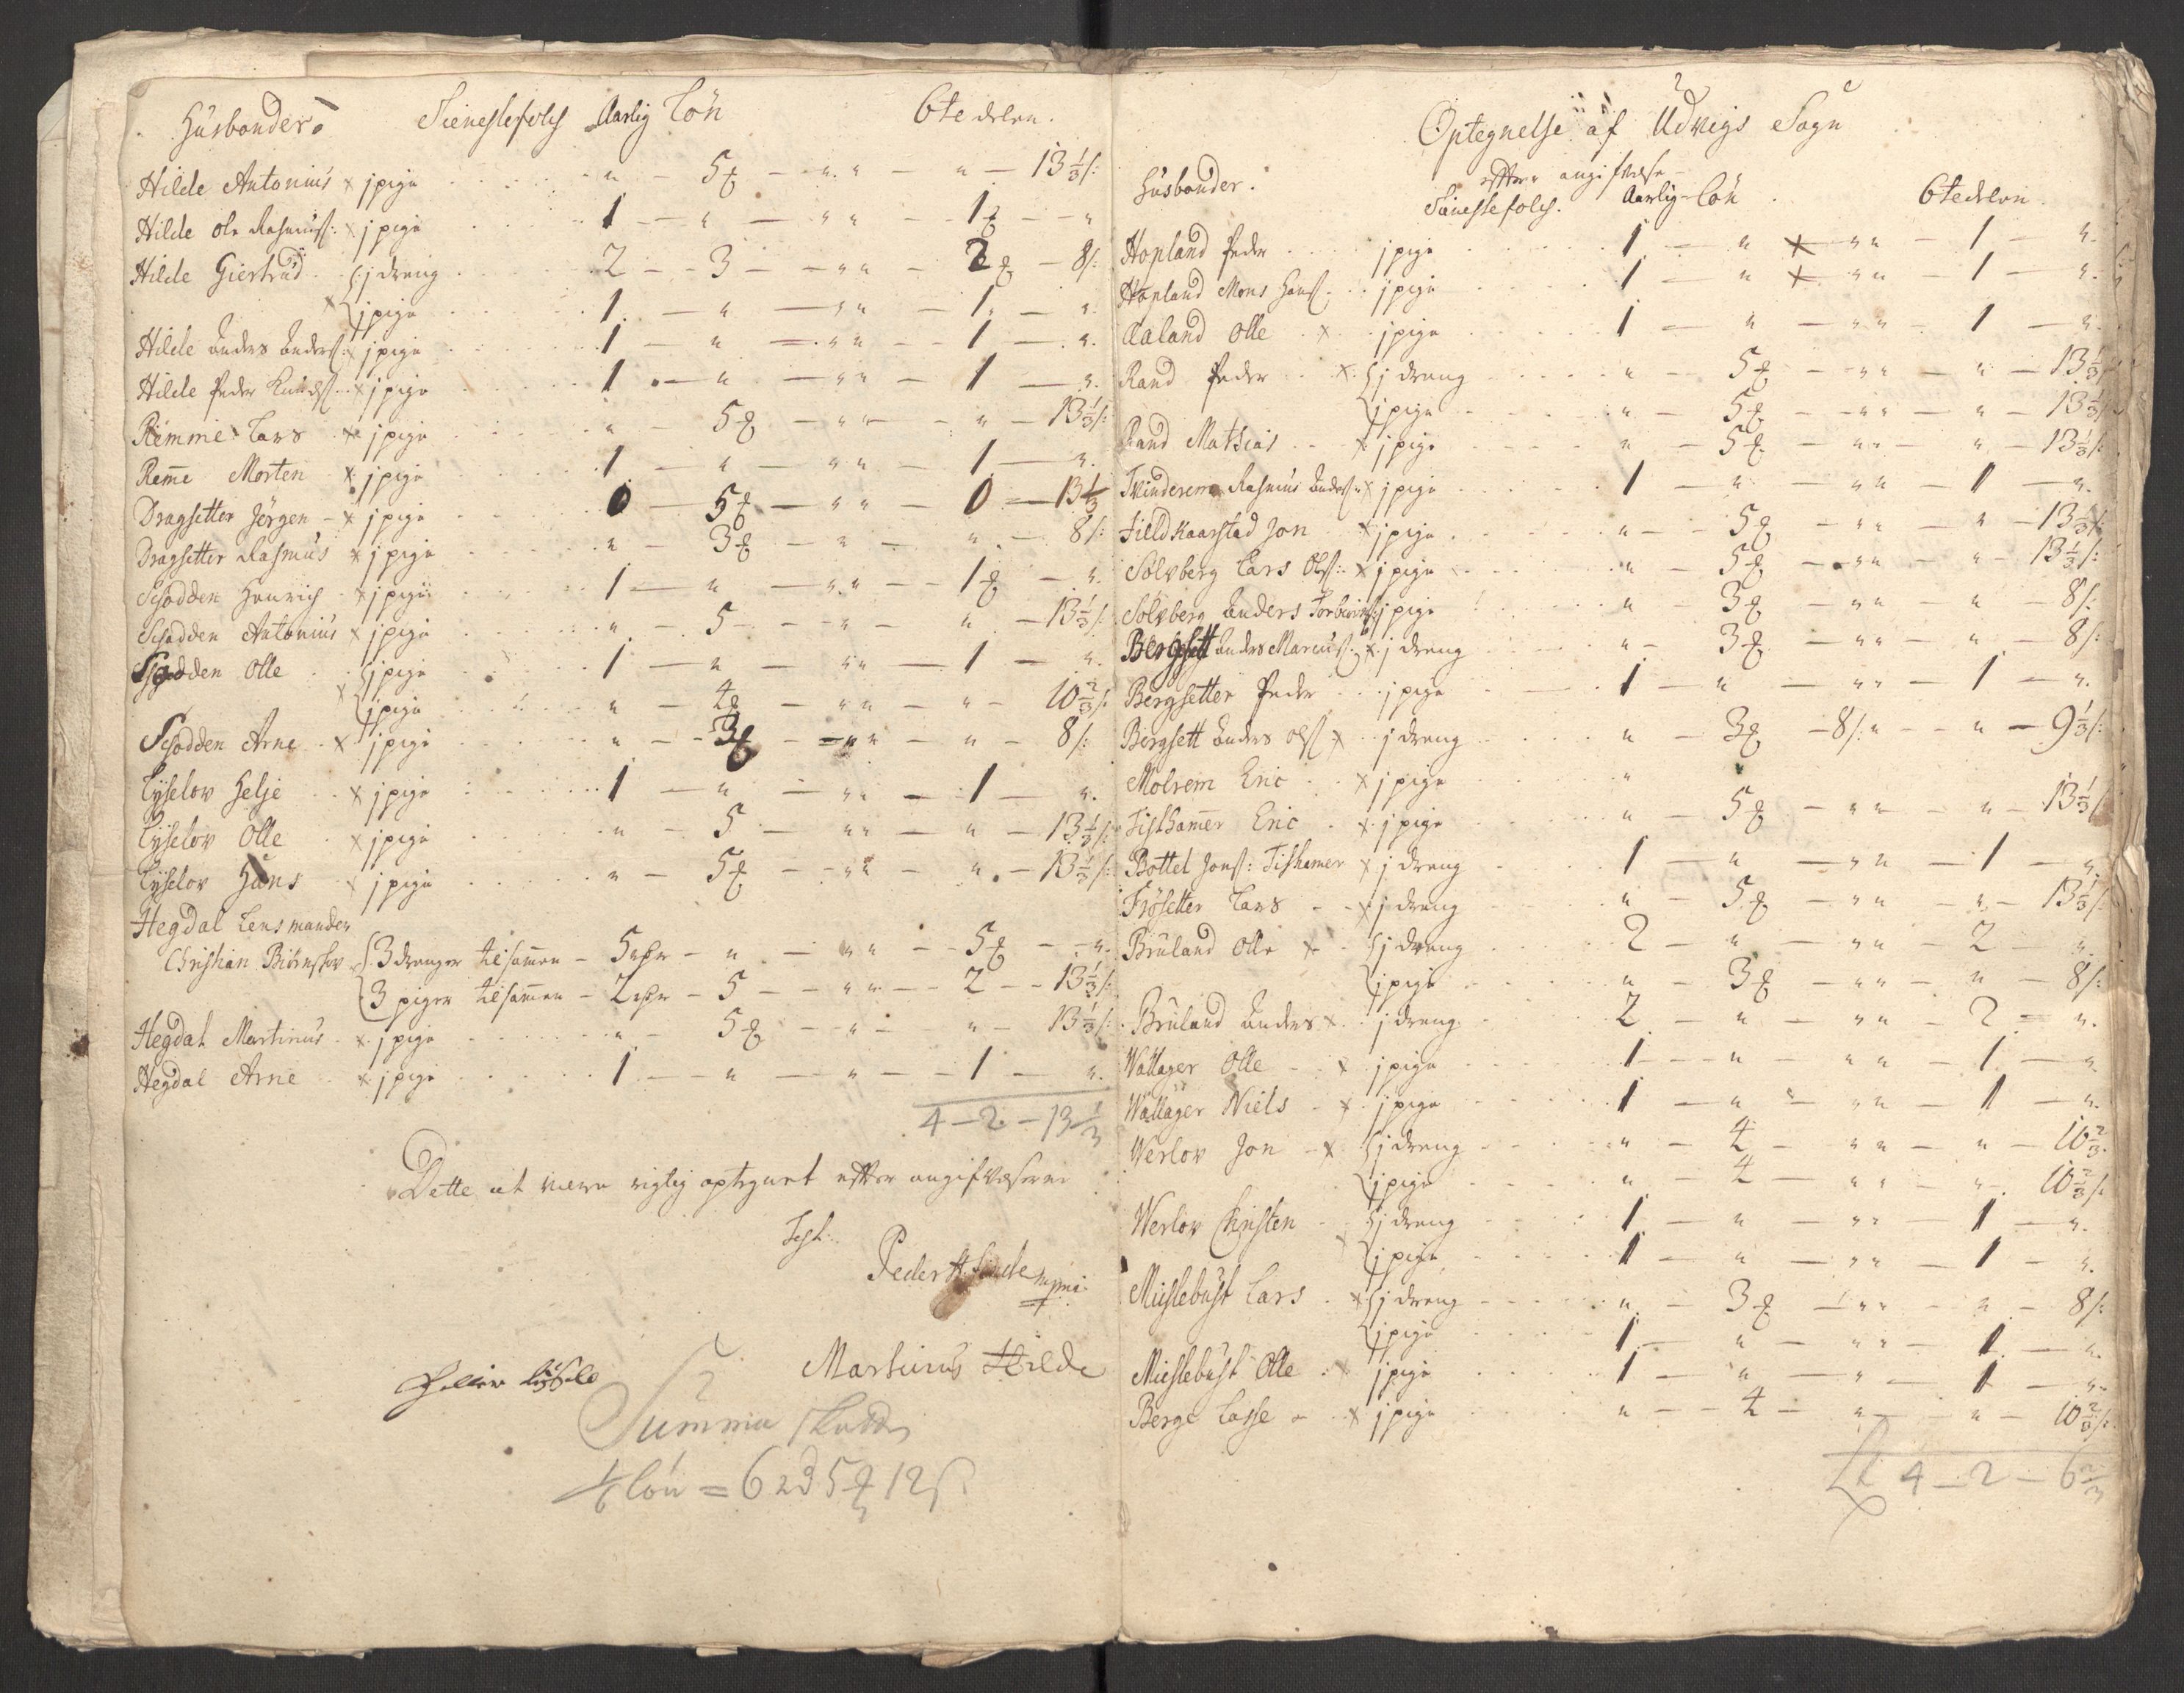 Husbonder. Tienestefolch Aarlig Lön 6te delen.
Hilde Antonius x j pige " - 5 " " " - 13 1/3 s:
Hilde Ole Rasmuss: x j pige 1 - " - " " - 1 - "
Hilde Giertrud j dreng 2 - 3 - " " - 2 - 8 s:
x j pige 1 - " - " " - 1 - "
Hilde Anders Anders: x j pige 1 - " - " " - 1 - "
Hilde Peder x j pige 1 - " - " " - 1 - "
Remme Lars x j pige " - 5 - " " - " - 13 1/3 s:
Reme Morten x j pige 1 - " - " " - 1 - "
Dragsetter Jörgen - x j pige 0 - 5 - " " - 0 - 13 1/3
Dragsetter Rasmus x j pige " - 3 - " - " - 8 s:
Schodden Henrich x j pige 1 - " - " " - 1 - "
Schodden Antonius x j pige " - 5 - " - " - 13 1/3 s:
Schodden Olle j pige 1 - " - " " - 1 - "
x j pige " - 4 - " " - " - 10 2/3 s:
Schodden Arne x j pige " - 3 - " " - " - 8 s:
Lyslov Helje x j pige 1 - " - " " - 1 - "
Lyslov Olle x j pige " - 5 - " " - " - 13 1/3 s:
Lyslov Hans x j pige " - 5 - " " - " - 13 1/3 s:
Hegdal Lensmanden
Christian 3 drenger tilsamen - 5 - " - " " - 5 - "
3 piger tilsamen - 2 - 5 - " " - 2 - 13 1/3 s:
Hegdal Martinus x j pige " - 5 - " - " - 13 1/3 s:
Hegdal Arne x j pige 1 - " - " - 1 - "
4 - 2 - 13 1/3
Dette at være rigtig optegnet efter angifvelserne
Test:
Peder
Martinus Hilde
Summa
1/6 lön = 6 rd 5 12 s
Optegnelse af Udvigs Sogn
efter angifvelse
Husbonder. Tienestefolch. Aarlig-Lön 6te delen.
Hopland Peder j pige 1 - " x " " - 1 - "
Hopland Mons Hans: j pige 1 - " x " " - 1 - "
Aaland Olle x j pige 1 - " - " " - 1 - "
Rand Peder x j dreng " - 5 - " " - " - 13 1/3
j pige " - 5 - " " - " - 13 1/3
Rand Mathias x j pige " - 5 - " " - " - 13 1/3 s:
Tvinderem Rasmus Anders: x j pige 1 - " - " " - 1 - "
Fieldkaarstad Jon x j pige " - 5 - " " - " - 13 1/3 s:
Sölvberg Lars Ols: x j pige " - 5 - " " - " - 13 1/3 s:
Sölvberg Anders j pige " - 3 - " " - " - 8 s:
Bergsett Anders Marcus: x j dreng " - 3 - " " - " - 8 s:
Bergsetter Peder j pige 1 - " - " " - 1 - "
Bergsett Anders Ols: x j dreng " - 3 - 8 s: " - " - 9 1/3 s:
Molrem Eric x j pige "
Fisthamer Eric x j pige " - 5 - " " - " - 13 1/3 s
Bottel Jons: Fishamer x j dreng 1 - " - " " - 1 - "
Frösetter Lars - x j dreng " - 5 - " " - " - 13 1/3 s:
Bruland Olle x j dreng 2 - " - " " - 2 - "
j pige " - 3 - " " - " - 8 s:
Bruland Anders x j dreng 2 - " - " " - 2 - "
Wallager Olle - x j pige 1 - " - " " - 1 - "
Wallager Niels - x j pige 1 - " - " " - 1 - "
Werlov Jon - x j dreng " - 4 - " " - " - 10 2/3
j pige " - 4 - " " - " - 10 2/3 s:
Werlov Christen j dreng 1 - " - " " - 1 - "
x j pige 1 - " - " " - 1 - "
Myslebust Lars x j dreng " - 3 - " " - " - 8 s:
j pige 1 - " - " " - 1 - "
Myslebust Olle x j pige 1 - " - " - 1 - "
Berge Lasse x j pige " - 4 - " - " - 10 2/3 s:
4 - 2 - 6 2/3